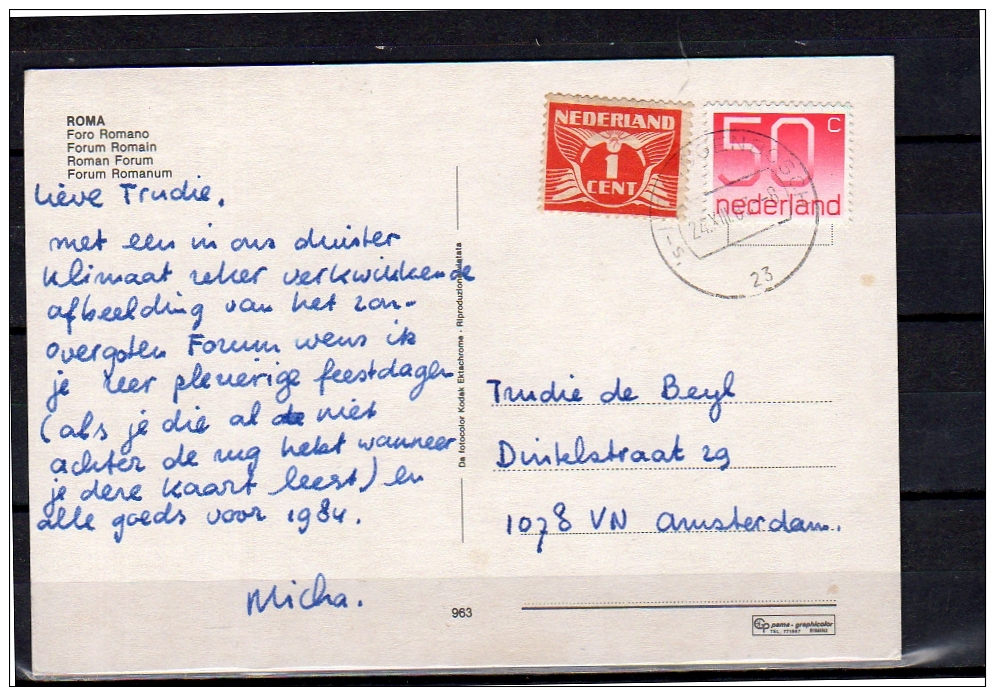 ROMA
Foro Romano
Forum Romain
Roman Forum
Forum Romanum
Lieve Trudie,
met een in ons duister
klimaat zeker verkwikkende
afbeelding van het zon-
overgoten Forum wens ik
je zeer plezierige feestdagen
(als je die al niet
achter de rug hebt wanneer
je deze kaart leest) en
alle goeds voor 1984.
Micha.
Da fotocolor Kodak Ektachrome - Riproduzione vietata
963
NEDERLAND
1
CENT
50 c
nederland
23
Trudie de Beyl
Dintelstraat 29
1078 VN Amsterdam.
pama-graphicolor